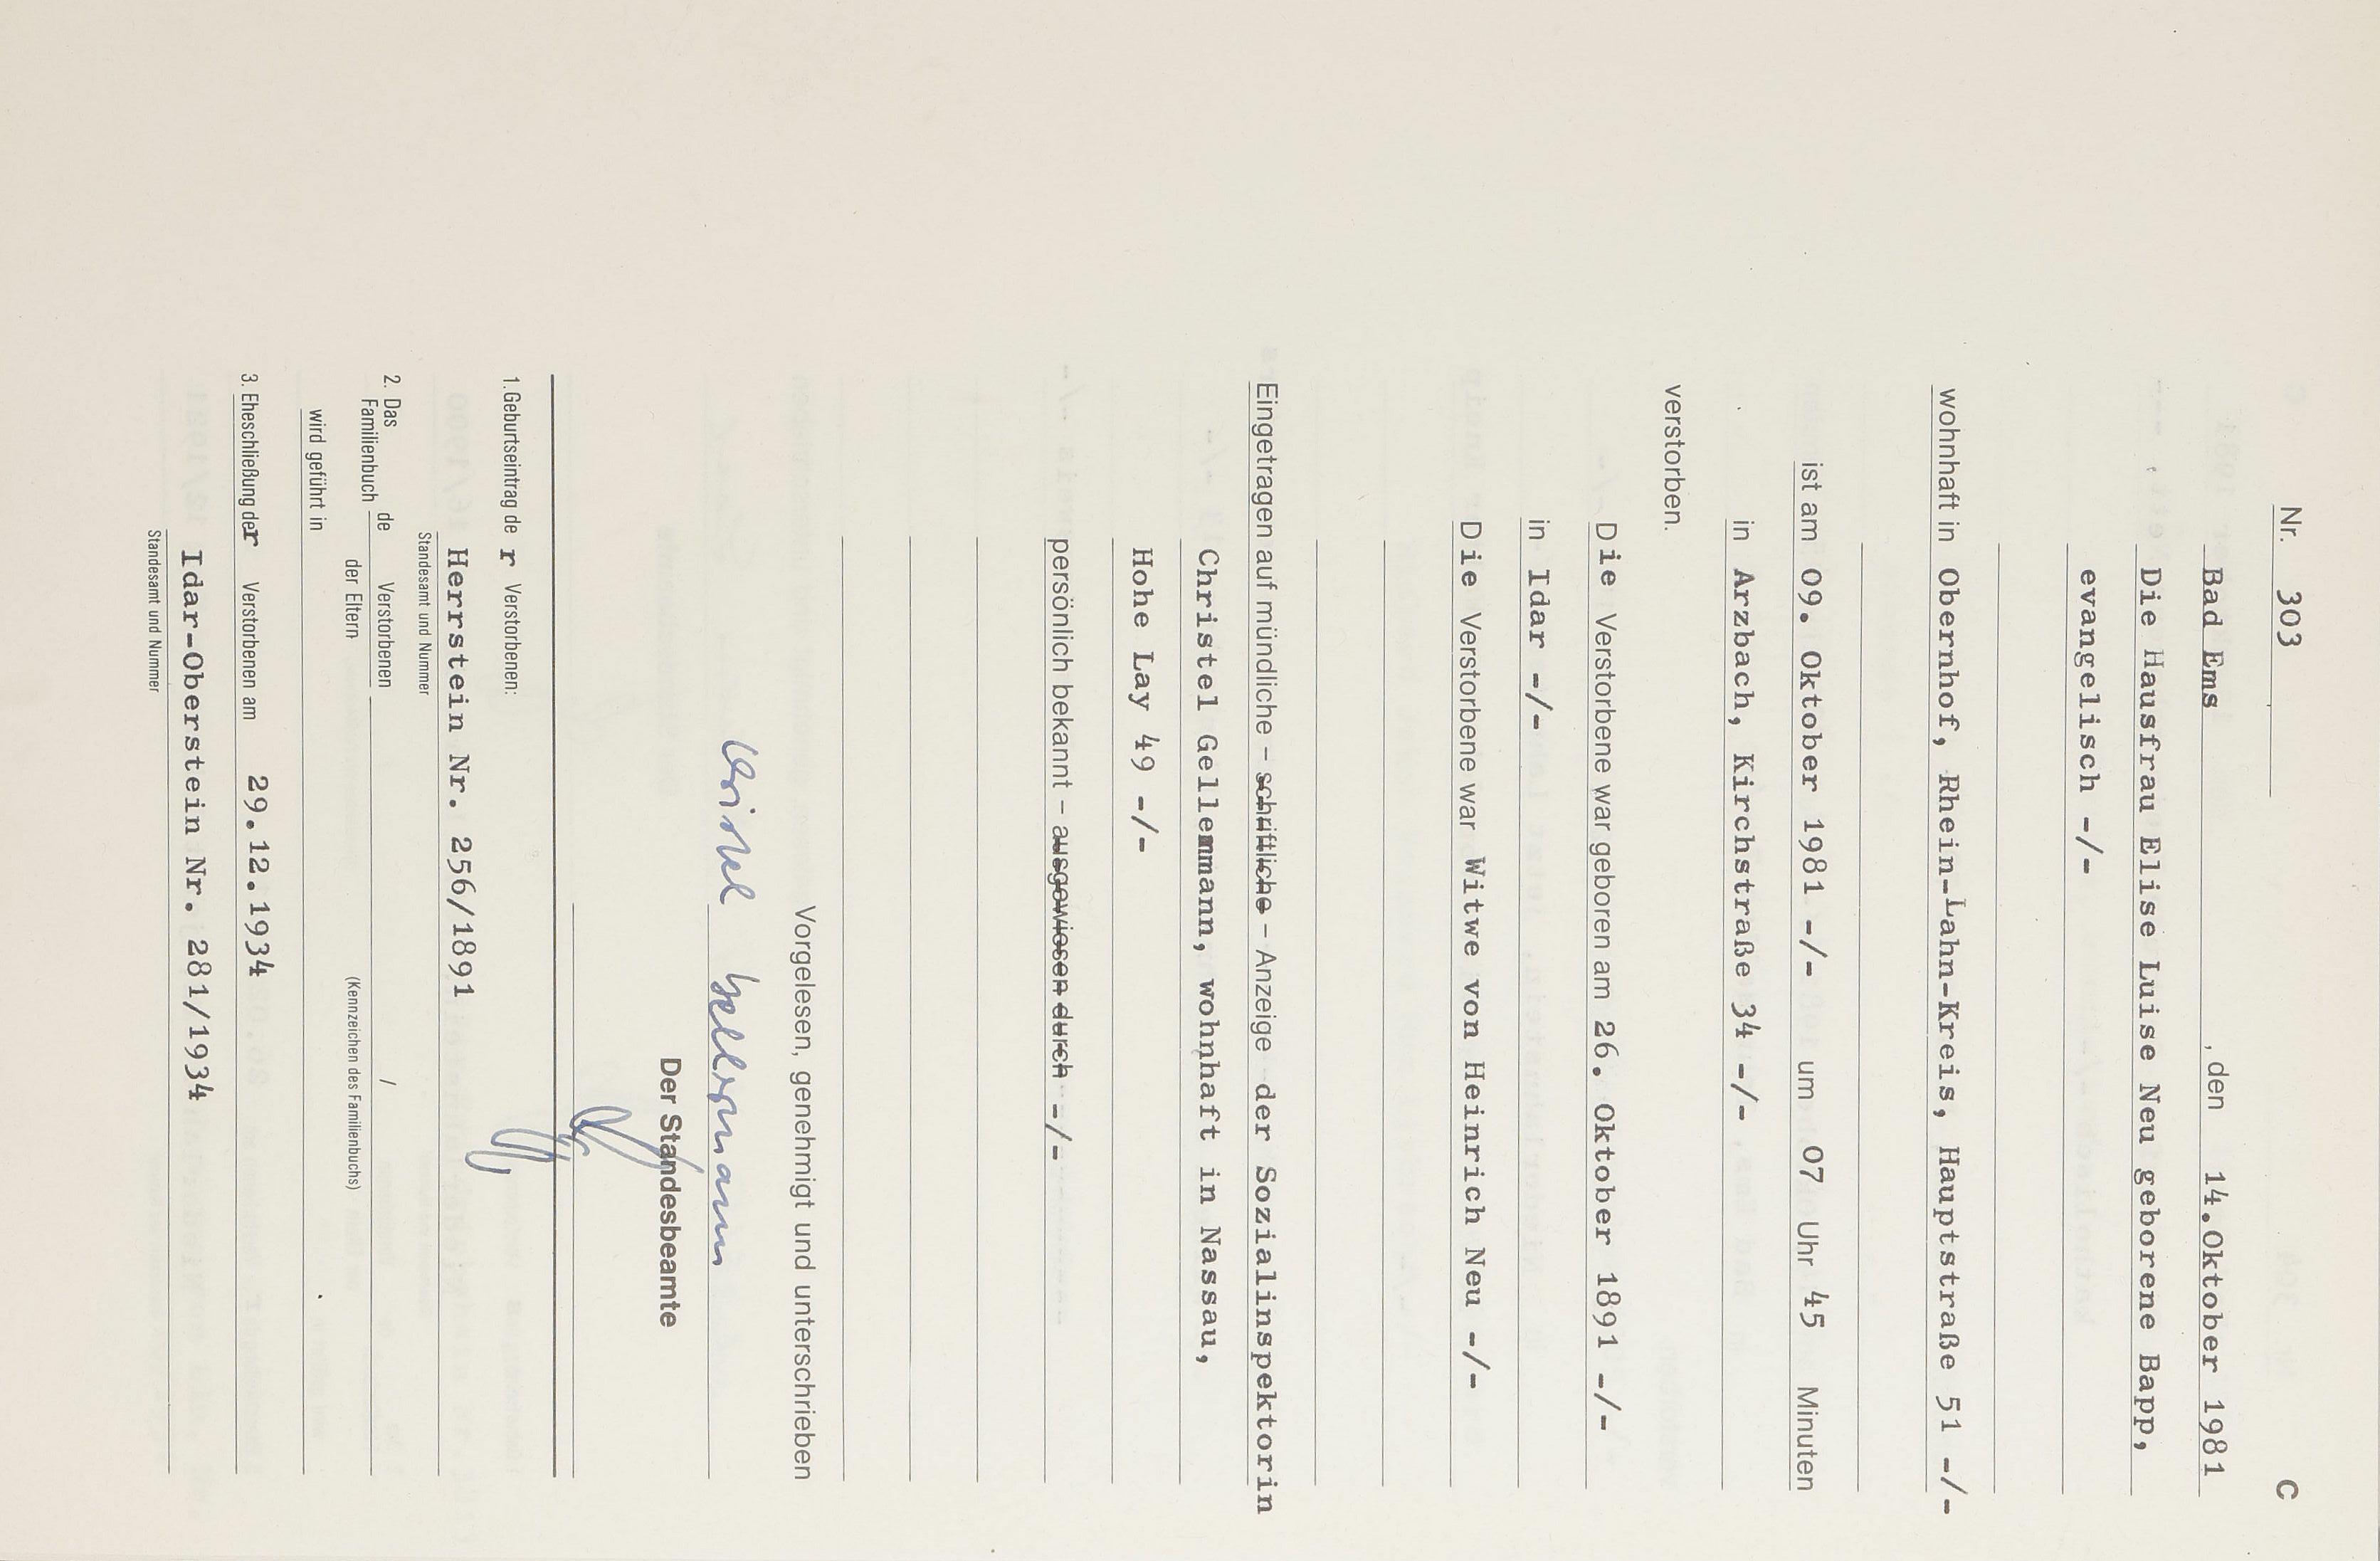 C
Nr. 303
Bad Ems , den 14.Oktober 1981
Die Hausfrau Elise Luise Neu geborene Bapp,
evangelisch -/-
wohnhaft in Obernhof, Rhein-Lahn-Kreis, Hauptstraße 51 -/-
ist am 09. Oktober 1981 -/- um 07 Uhr 45 Minuten
in Arzbach, Kirchstraße 34 -/-
verstorben.
Die Verstorbene war geboren am 26. Oktober 1891 -/-
in Idar -/-
Die Verstorbene war Witwe von Heinrich Neu -/-
Eingetragen auf mündliche – schriftliche – Anzeige der Sozialinspektorin
Christel Gellemmann, wohnhaft in Nassau,
Hohe Lay 49 -/-
persönlich bekannt – ausgewiesen durch -/-
Vorgelesen, genehmigt und unterschrieben
Christel Gellermann
Der Standesbeamte
1.Geburtseintrag de r Verstorbenen:
Herrstein Nr. 256/1891
Standesamt und Nummer
2. Das Familienbuch de Verstorbenen /
der Eltern (Kennzeichen des Familienbuchs)
wird geführt in
3. Eheschließung der Verstorbenen am 29.12.1934
Idar-Oberstein Nr. 281/1934
Standesamt und Nummer